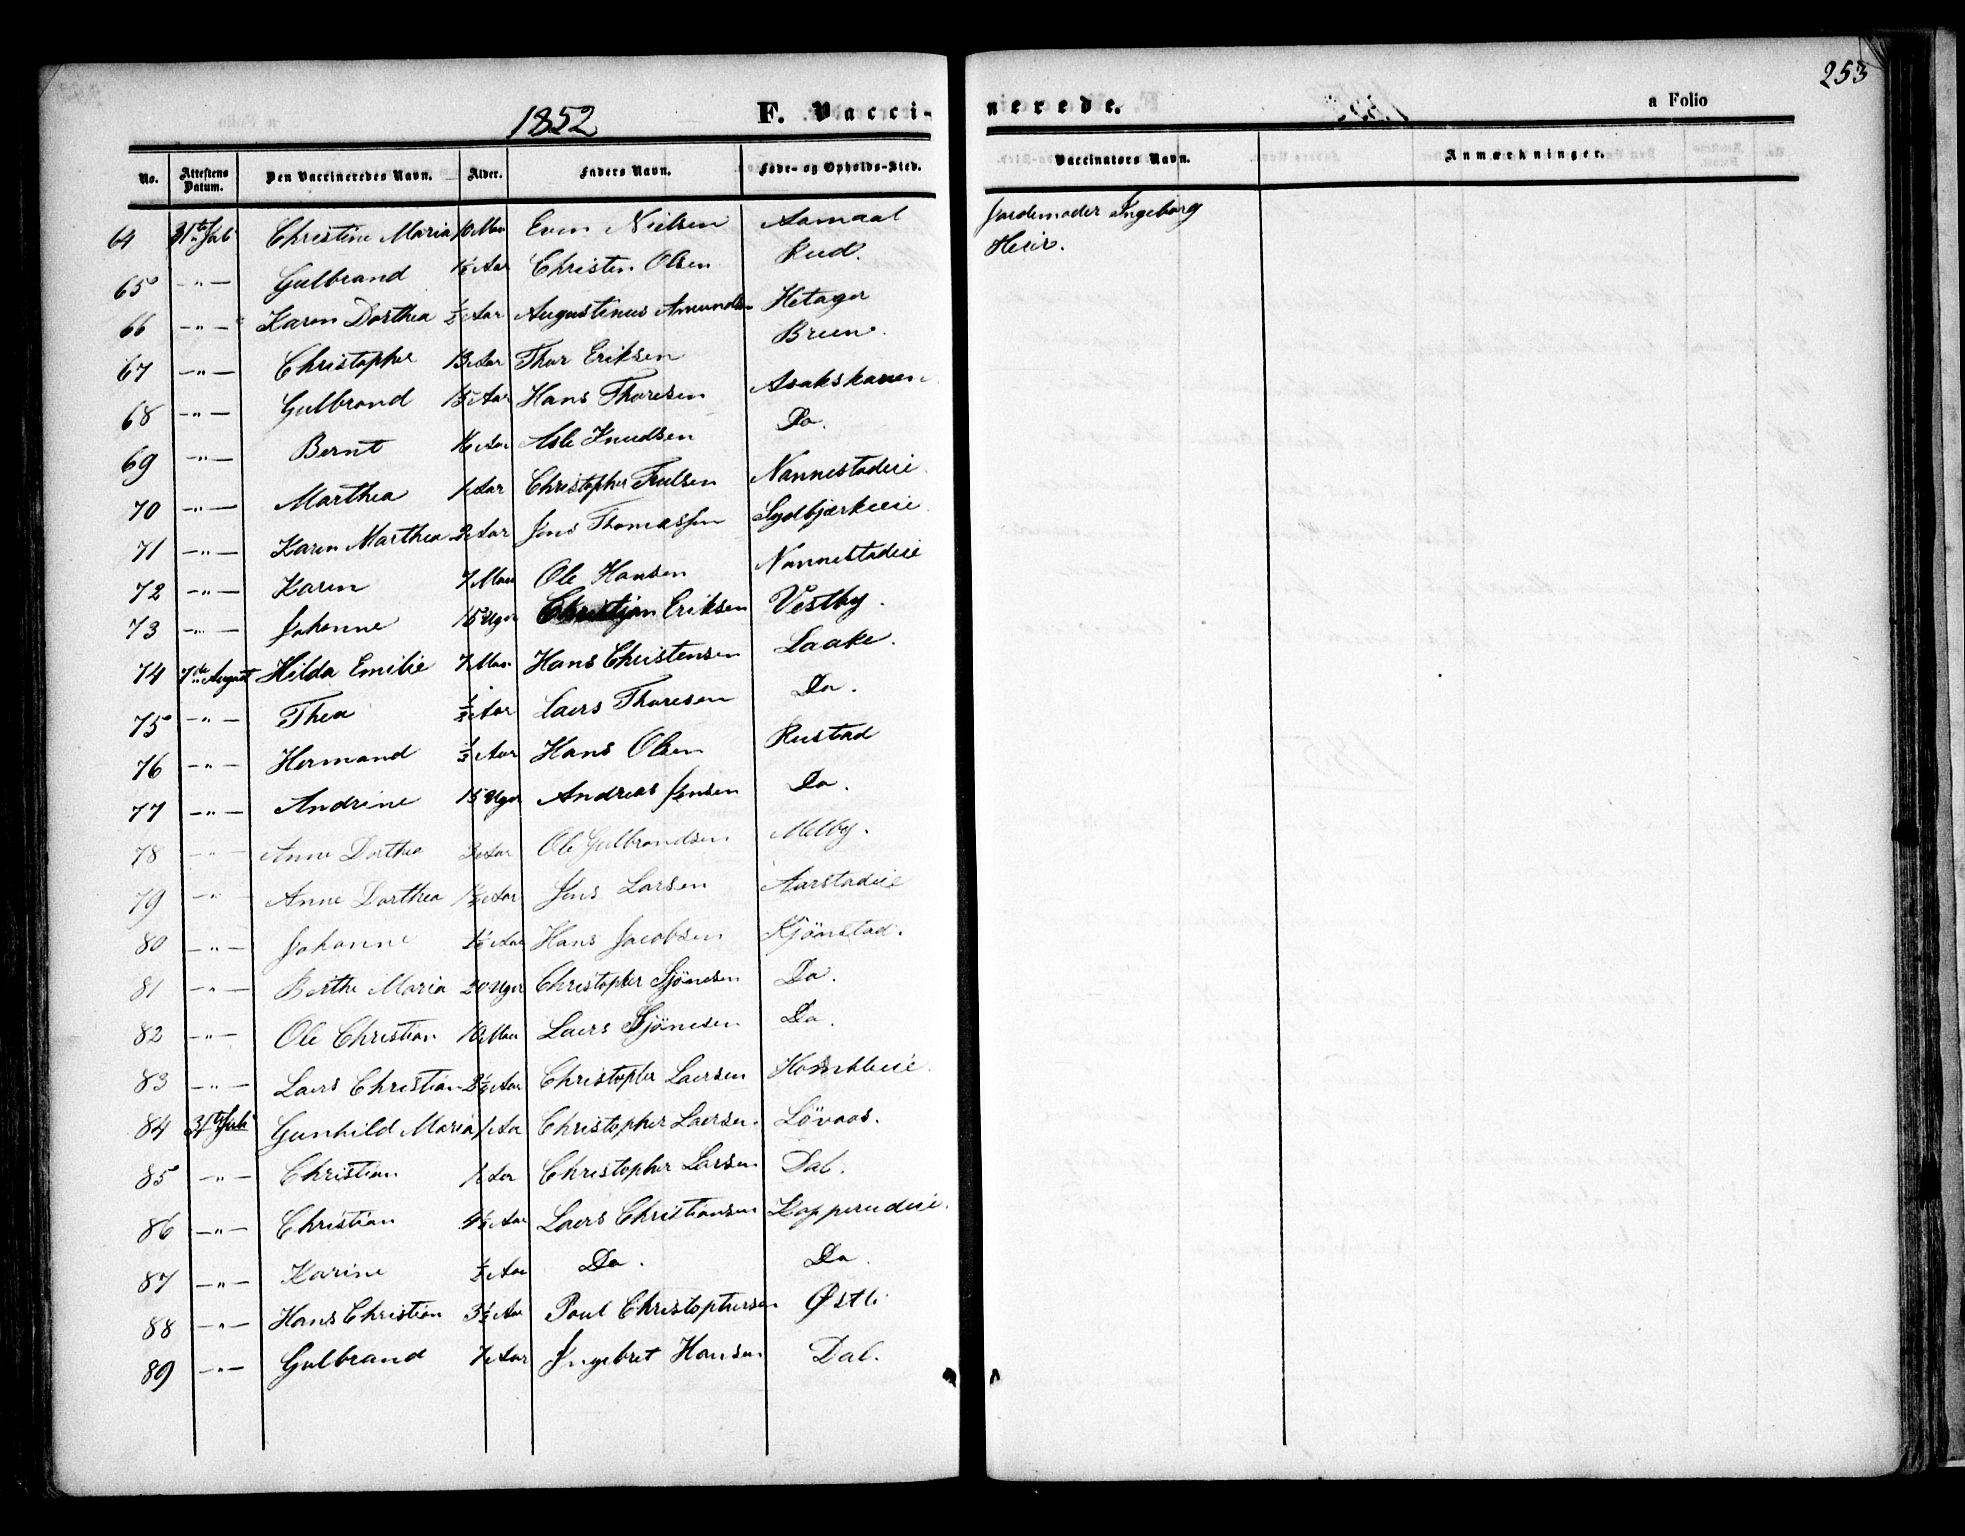 1852 F. Vacci-
nerede.
a Folio
253
No. Attestens Datum. Den Vaccineredes Navn. Alder. Faders Navn. Føde- og Opholds-Sted.
Vaccinators Navn. Anmærkninger.
64 31te Juli Christine Maria 10 Mdr Even Nielsen Aamaal Jordemoder Ingeborg
65 —"— Gulbrand 1½ Aar Christen Olsen Rud. Heir.
66 —"— Karen Dorthea ½ Aar Augustinus Amundsen Hetager
67 —"— Christopher Aar Thor Eriksen Breen.
68 —"— Gulbrand Aar Hans Thoresen Asakskaven
69 —"— Bernt Aar Asle Knudsen Do.
70 —"— Marthea Aar Christopher Nannestadeie.
71 —"— Karen Marthea 2 Aar Jens Thomassen Sydbjærkeeie.
72 —"— Karen 7 Mdr Ole Hansen Nannestadeie
73 —"— Johanne 15 Uger Christian Eriksen Vestby.
74 7de August Hilda Emilie 7 Mdr Hans Christensen Laake.
75 —"— Thea ½ Aar Laers Thoresen Do.
76 —"— Hermand ½ Aar Hans Olsen Rustad
77 —"— Andrine 15 Uger Andreas Jensen Do.
78 —"— Anne Dorthea Aar Ole Gulbrandsen Melby.
79 —"— Anne Dorthea 1½ Aar Jens Larsen Aarstadeie
80 —"— Johanne 1½ Aar Hans Jacobsen Kjönstad.
81 —"— Berthe Maria 20 Uger Christopher Sjönesen Do.
82 —"— Ole Christian 10 Mdr Laers Sjönesen Do.
83 —"— Laers Christian 2½ Aar Christopher Laersen
84 31te Juli Gunhild Maria 1 Aar Christopher Laersen. Lövaas.
85 —"— Christian Aar Christopher Larsen Dal.
86 —"— Christian 4½ Aar Laers Christiansen Kopperudeie.
87 —"— Karine ½ Aar Do. Do.
88 —"— Hans Christian 3½ Aar Poul Christophersen Østli
89 —"— Gulbrand Aar Ingebret Hansen Dal.